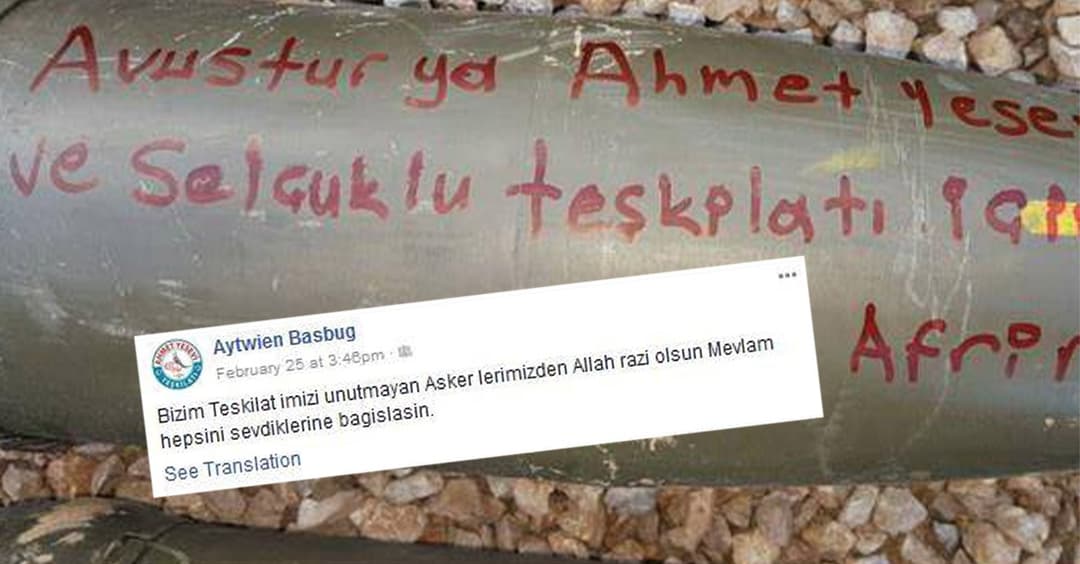 Avusturya Ahmet yese
ve Selçuklu teşkilatı için
Afrin
Aytwien Basbug
February 25 at 3:46pm
Bizim Teskilat imizi unutmayan Asker lerimizden Allah razi olsun Mevlam
hepsini sevdiklerine bagislasin.
See Translation
AHMET YESEVI
TEŞKILATI